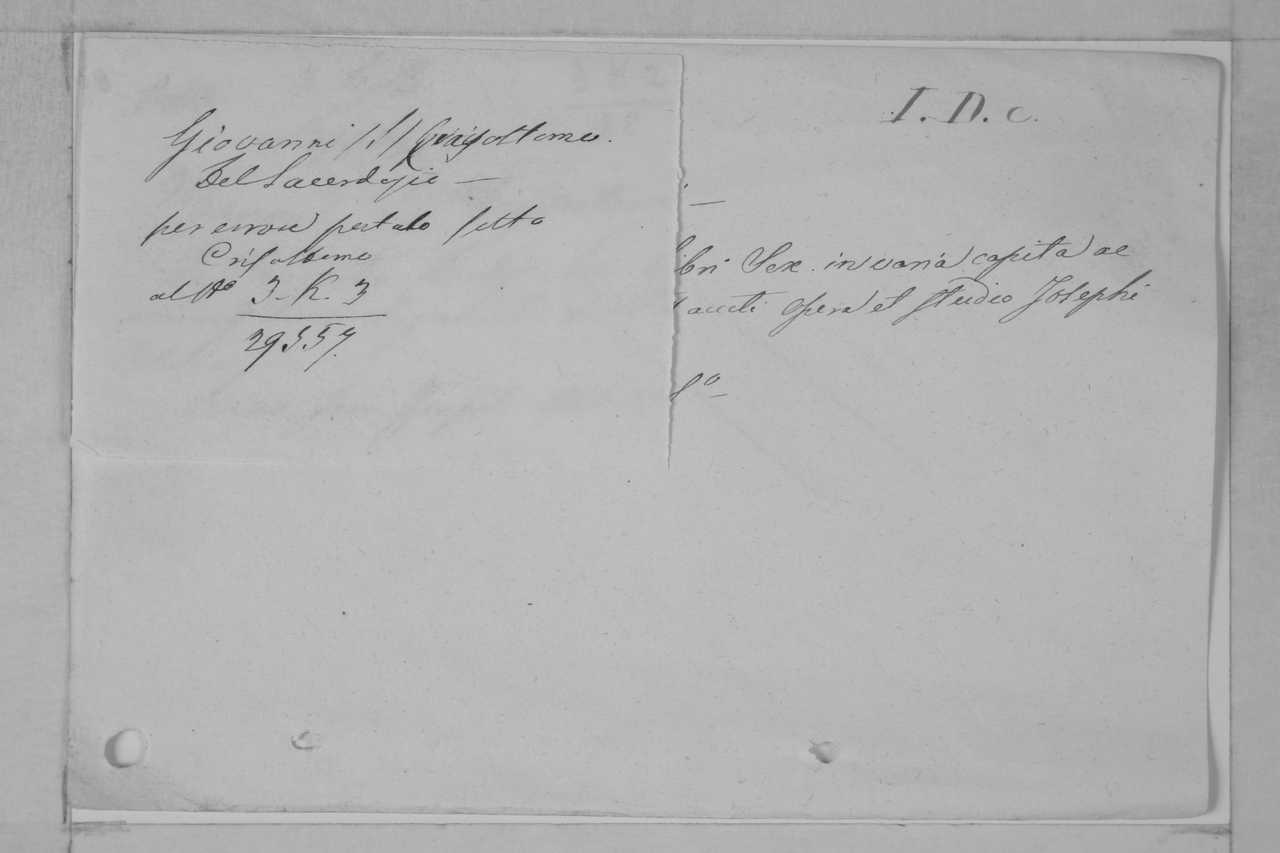 Giovanni (S.) Grisostomo.
Del Sacerdozio —
per errore portato sotto
Crisostomo
al No 3. K. 3
29557.
I. D. c.
—
bri Sex in varia capita ac
aucti opera et studio Josephi
8o